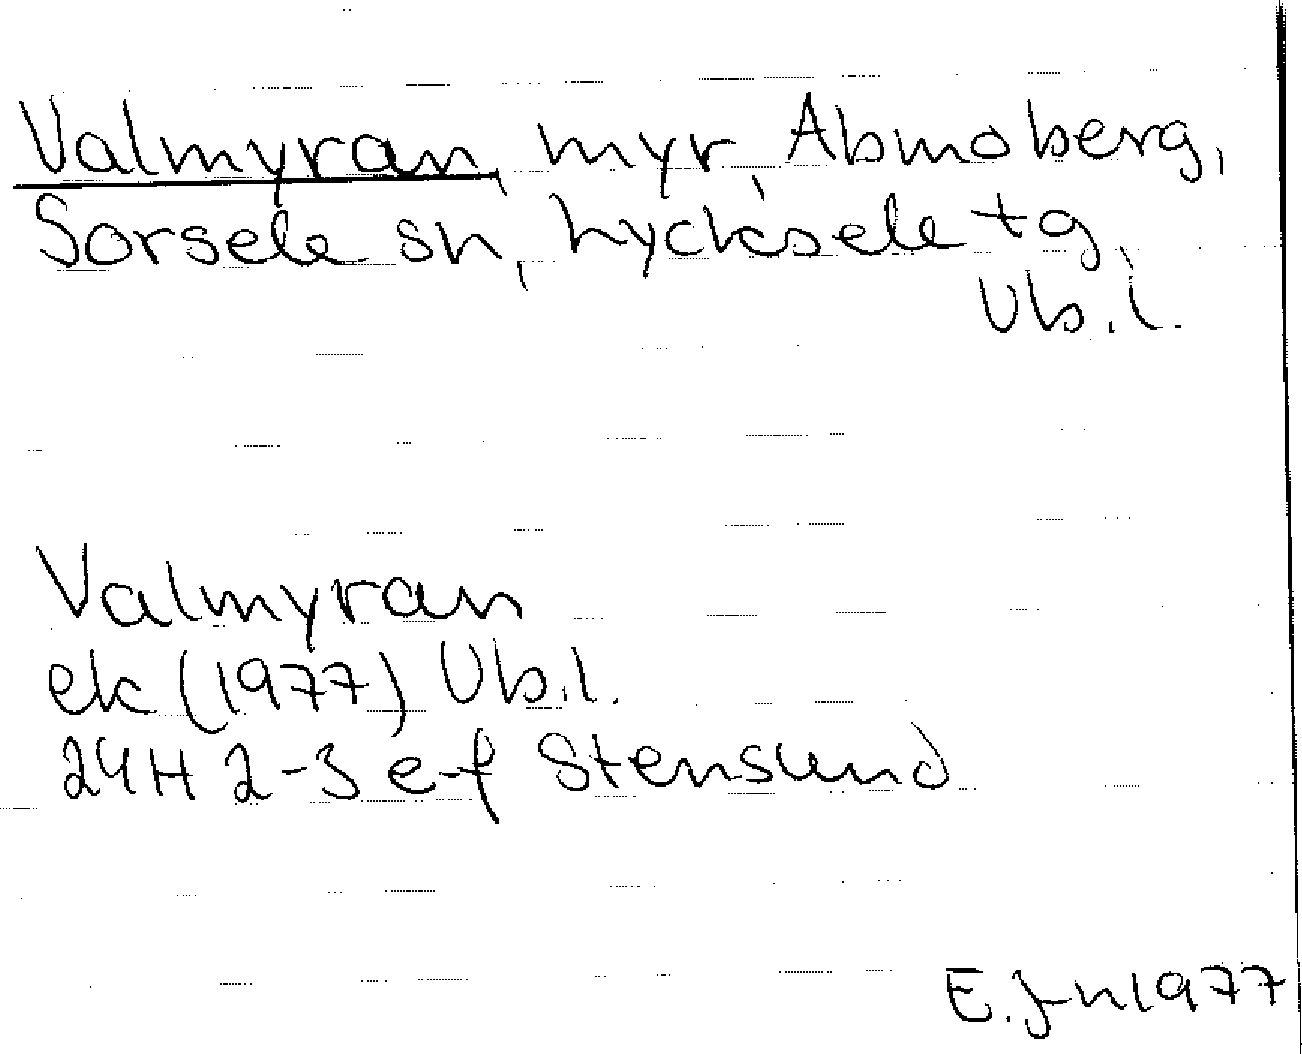 Valmyran, myr, Abmoberg,
Sorsele sn, Lycksele tg,
Vb.l.
Valmyran
ek (1977) Vb.l.
24H 2-3 e-f Stenslund
E.J-n 1977